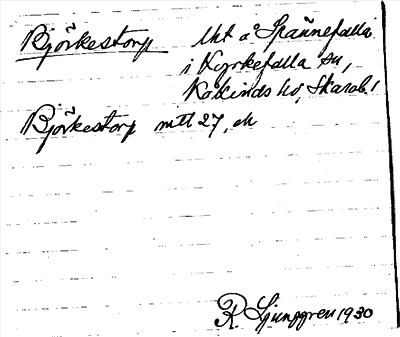 Björkestorp
Uht å Spännefalla
i Kyrkefalla sn,
Kåkinds hd, Skarab. l
Björkestorp mtl 27, ek
R. Ljunggren 1930